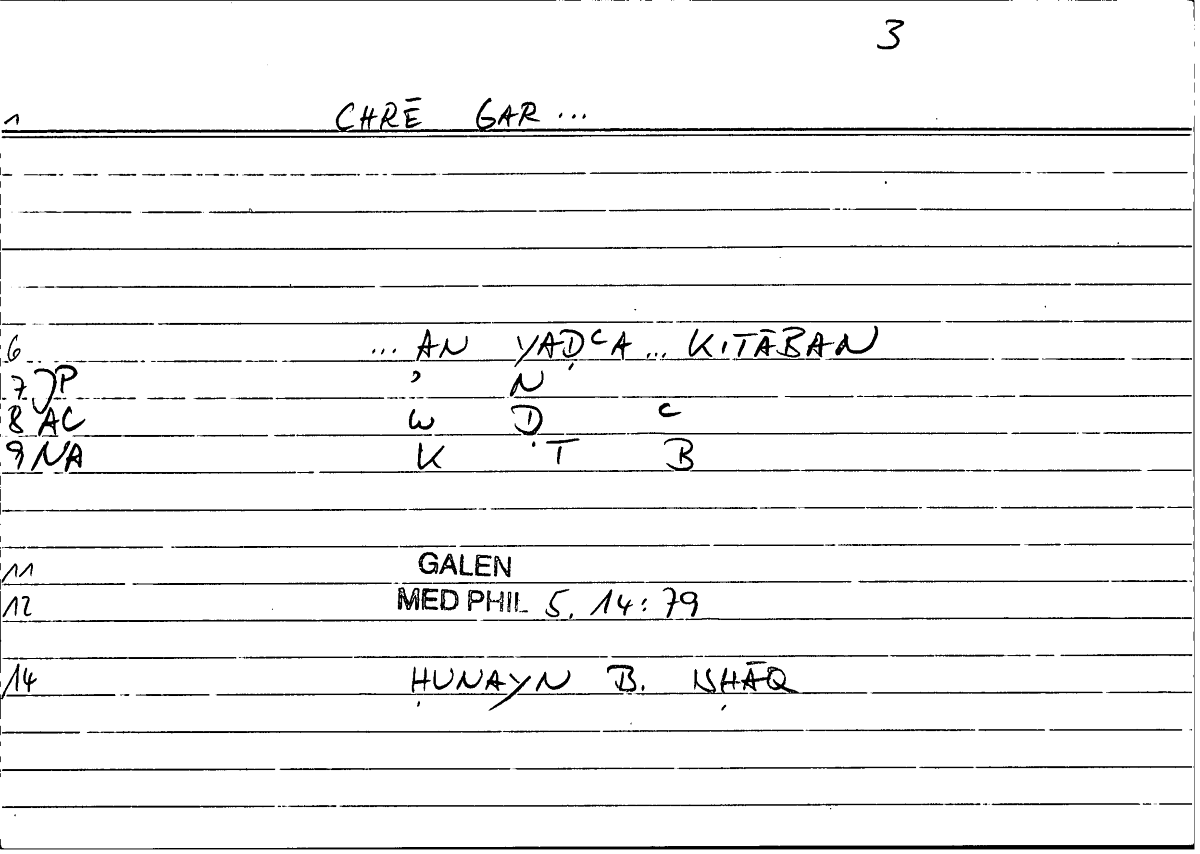 3
1 CHRĒ GAR ...
6 ... AN YAḌCA ... KITĀBAN
7 JP ' N
8 AC W Ḍ C
9 NA K T B
11 GALEN
12 MED PHIL 5, 14: 79
14 ḤUNAYN B. ISḤĀQ